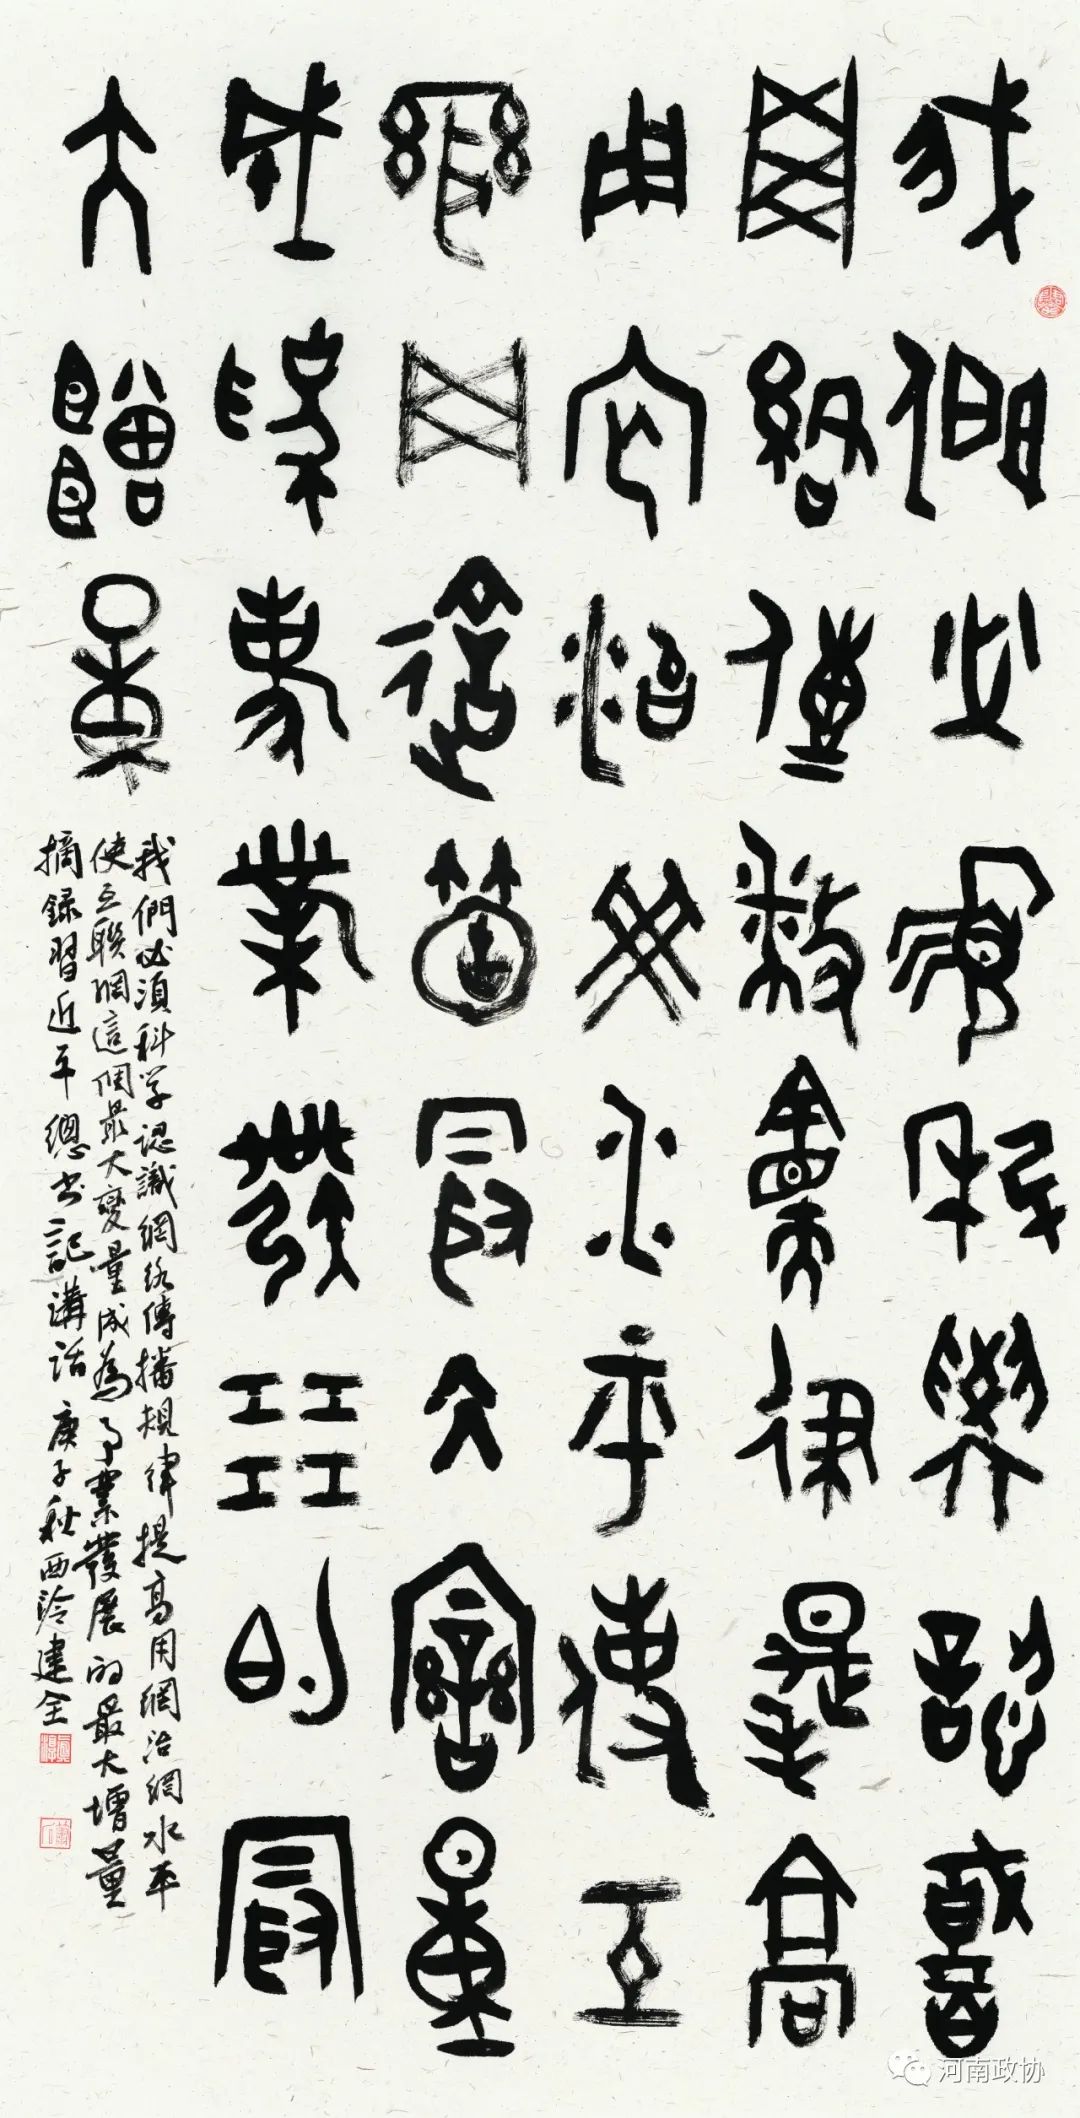 我們必須科學認識
網絡傳播規律提高
用網治網水平使互
聯網這個最大變量
成為事業發展的最
大增量
我們必須科学認識網絡傳播規律提高用網治網水平
使互聯網這個最大變量成為事業發展的最大增量
摘錄習近平總书記講話 庚子秋西泠建全
河南政协